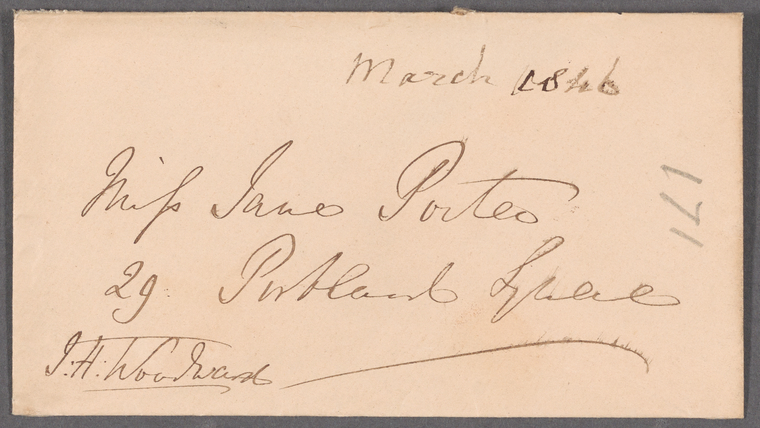 March 1846
Miss Jane Porter
29. Portland Square
J. H. Woodward
171